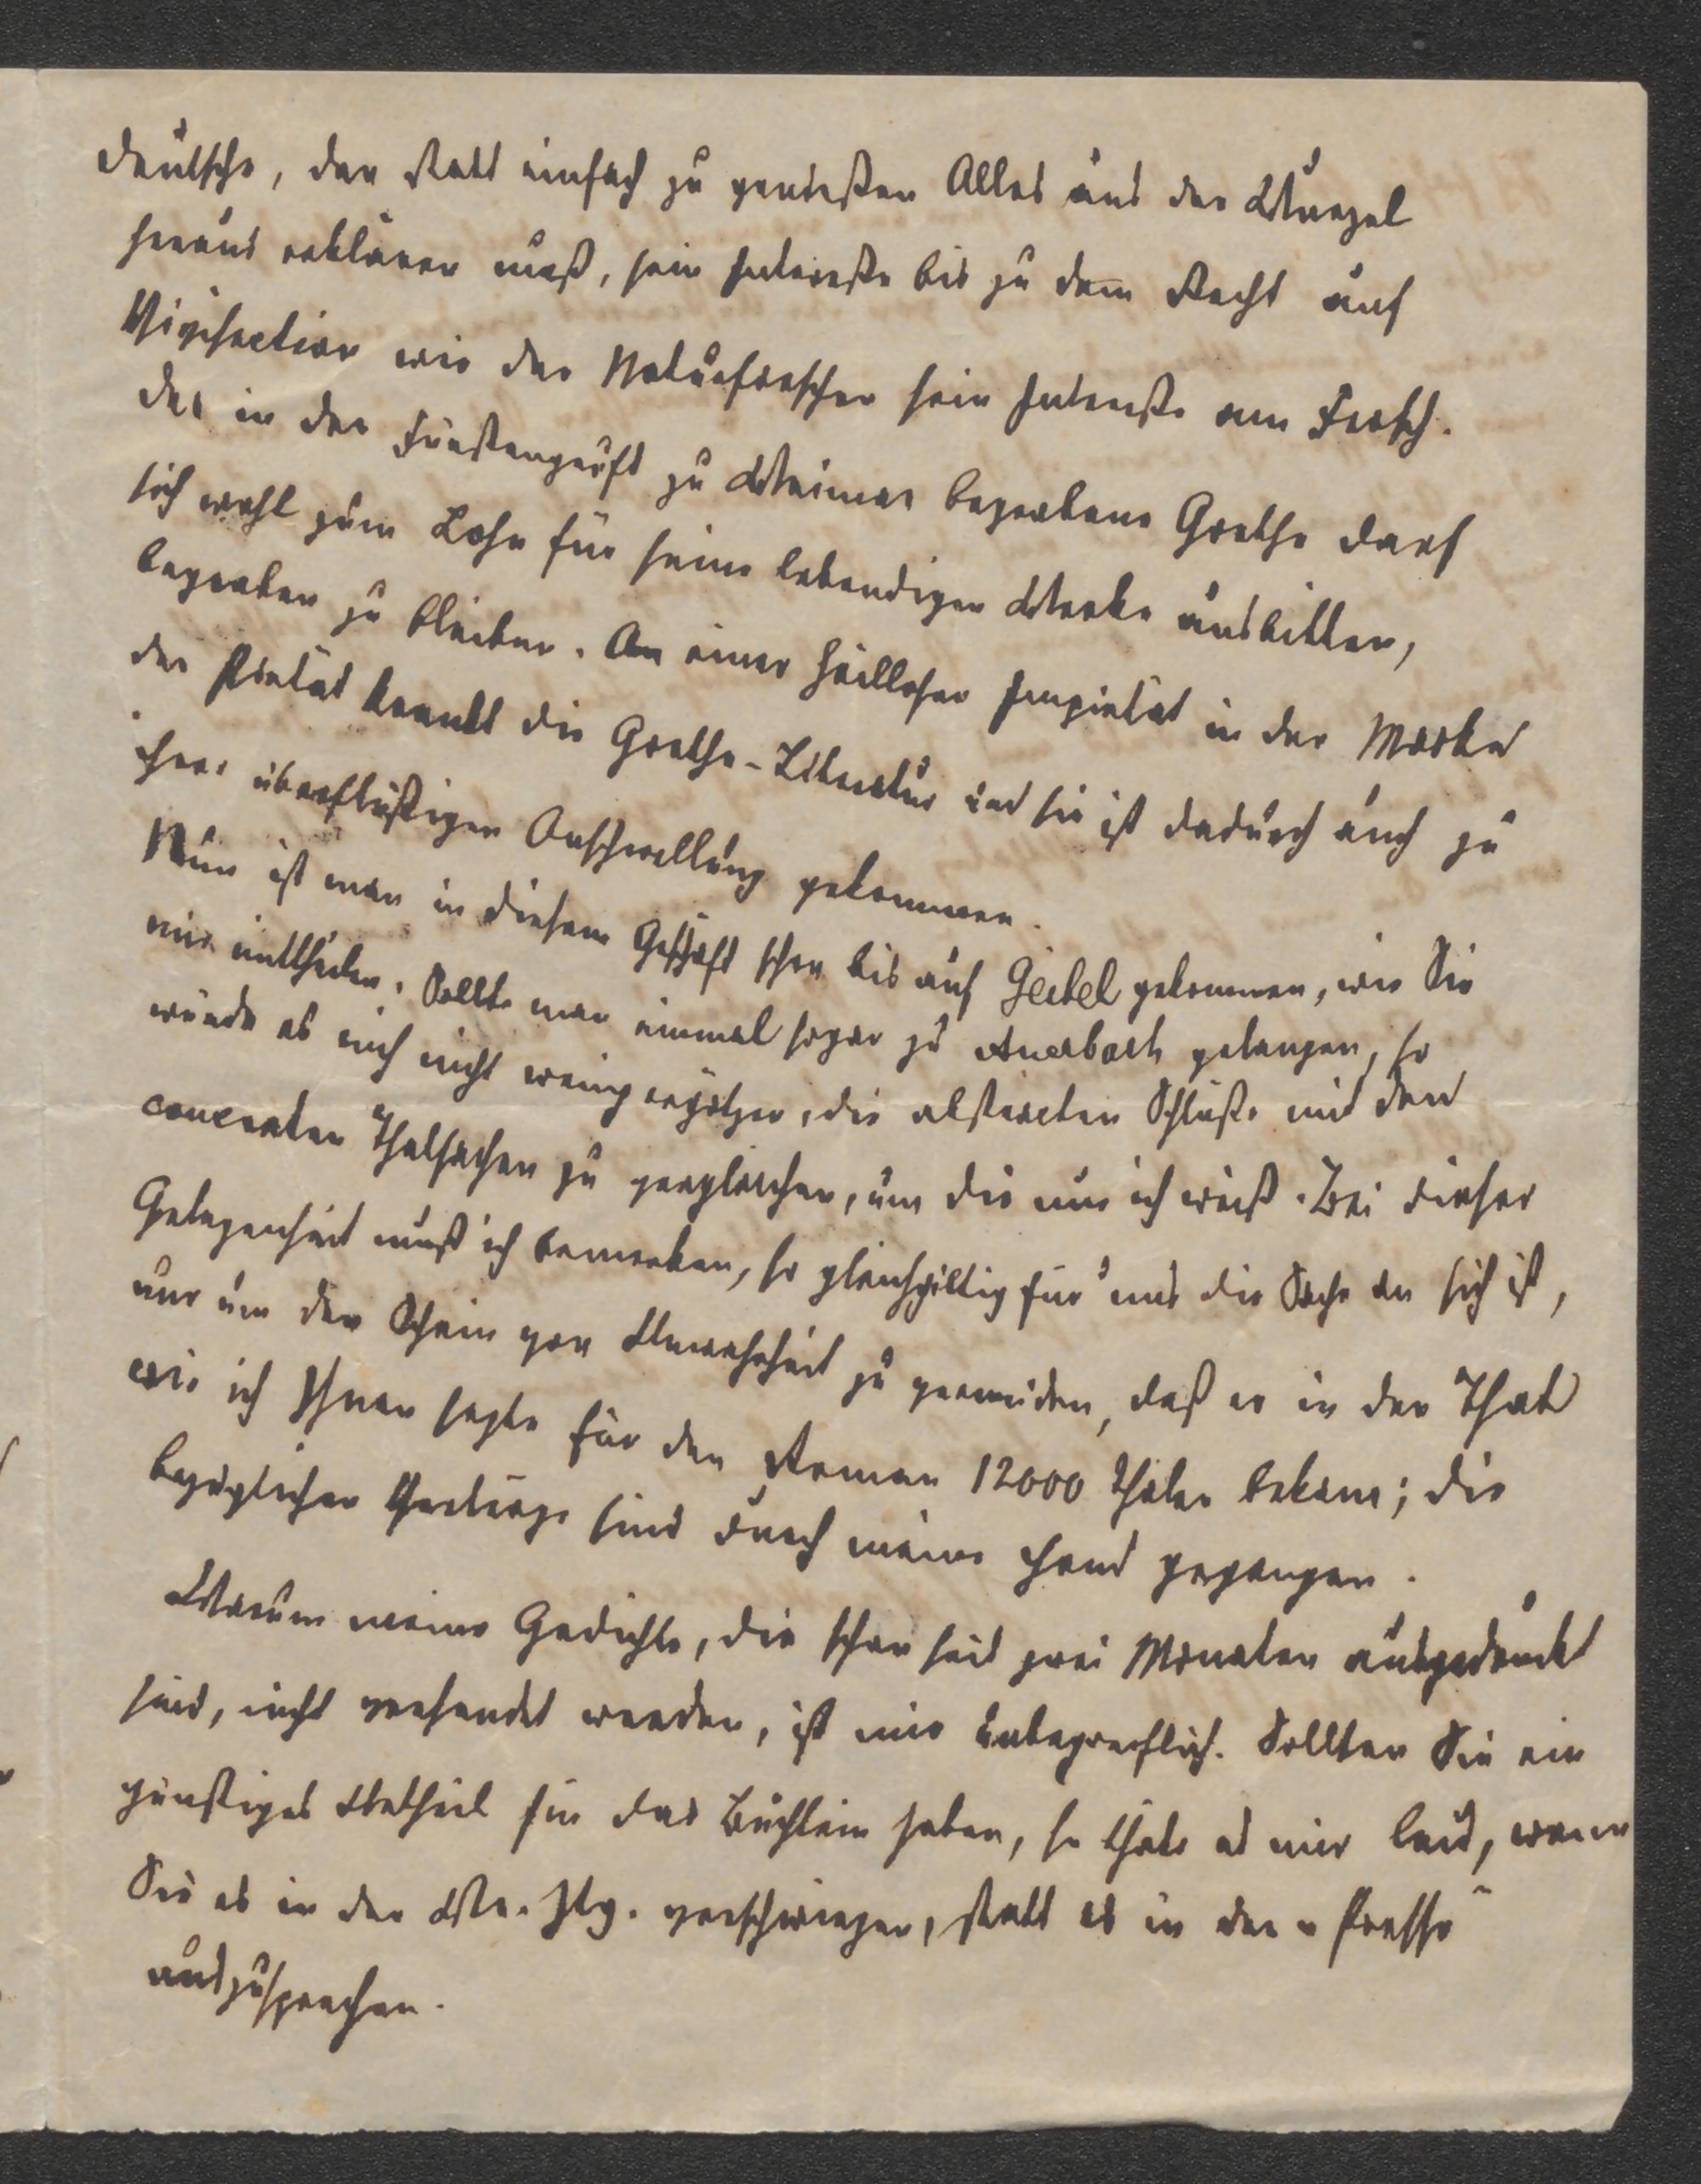 Deutsche, der statt einfach zu genießen Alles aus der Wurzel
heraus erklären muß, sein Interesse bis zu dem Recht auf
Vivisection wie der Naturforscher sein Interesse am Frosch.
Der in der Fürstengruft zu Weimar begrabene Goethe darf
sich wohl zum Lohn für seine lebendigen Werke ausbitten,
begraben zu bleiben. An einer heillosen Impietät in der Maske
der Pietät krankt die Goethe-Literatur und sie ist dadurch auch zu
ihrer überflüßigen Anschwellung gekommen.
Nun ist man in diesem Geschäft schon bis auf Geibel gekommen, wie Sie
mir mittheilen. Sollte man einmal sogar zu Auerbach gelangen, so
würde es mich nicht wenig ergötzen, die abstracten Schlüße mit den
concreten Thatsachen zu vergleichen, um die nur ich weiß. Bei dieser
Gelegenheit muß ich bemerken, so gleichgiltig für uns die Sache an sich ist,
nur um den Schein von Unwahrheit zu vermeiden, daß er in der That
wie ich Ihnen sagte für den Roman 12000 Thaler bekam; die
bezüglichen Verträge sind durch meine Hand gegangen.
Warum meine Gedichte, die schon seit zwei Monaten ausgedruckt
sind, nicht versendet werden, ist mir unbegreiflich. Sollten Sie ein
günstiges Urtheil für das Büchlein haben, so thäte es mir leid, wenn
Sie es in der Wr. Ztg. verschwiegen, statt es in der „Presse“
auszusprechen.